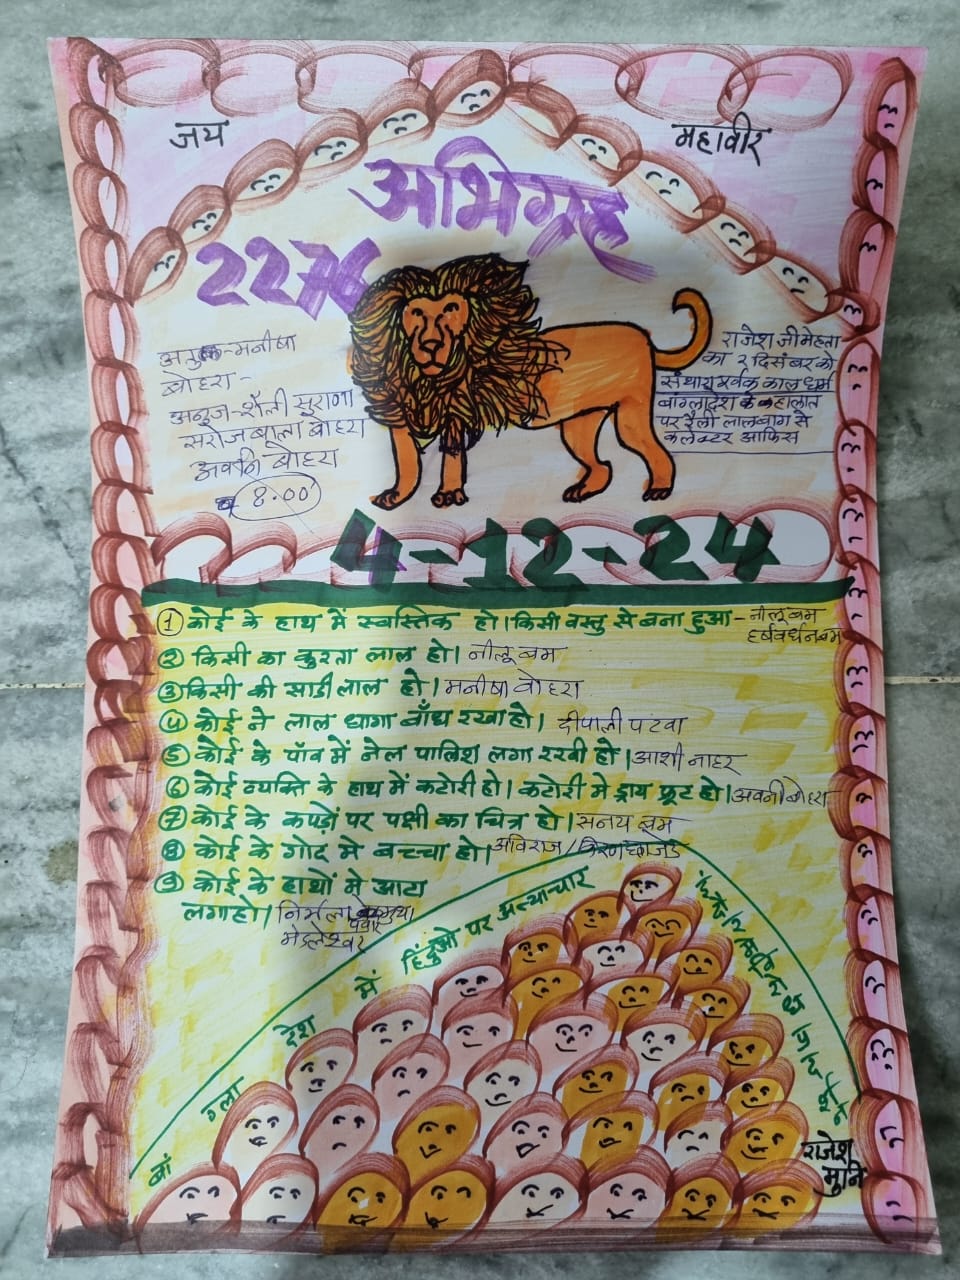 जय
महावीर
अभिग्रह
2276
अतुल-मनीषा
बोहरा-
अनुज-शैली सुराणा
सरोजबाला बोहरा
अवनी बोहरा
8.00
राजेश जी मेहता
का २ दिसंबर को
संथारा पूर्वक काल धर्म
बांग्लादेश के हालात
पर रैली लालबाग से
कलेक्टर आफिस
4-12-24
① कोई के हाथ में स्वस्तिक हो। किसी वस्तु से बना हुआ - नीलू बम
हर्षवर्धन बम
② किसी का कुरता लाल हो। नीलू बम
③ किसी की साडी लाल हो। मनीषा बोहरा
④ कोई ने लाल धागा बाँध रखा हो। दीपाली पटवा
⑤ कोई के पाँव में नेल पालिश लगा रखी हो। आशी नाहर
⑥ कोई व्यक्ति के हाथ में कटोरी हो। कटोरी मे ड्राय फ्रूट हो। अवनी बोहरा
⑦ कोई के कपड़ो पर पक्षी का चित्र हो। सनय बम
⑧ कोई के गोद मे बच्चा हो। अविराज / किरण छाजेड
⑨ कोई के हाथों मे आटा
लगा हो। निर्मला मुथा
पवार
बांगला देश में हिंदुओ पर अत्याचार
प्रदर्शन
राजेश
मुनि